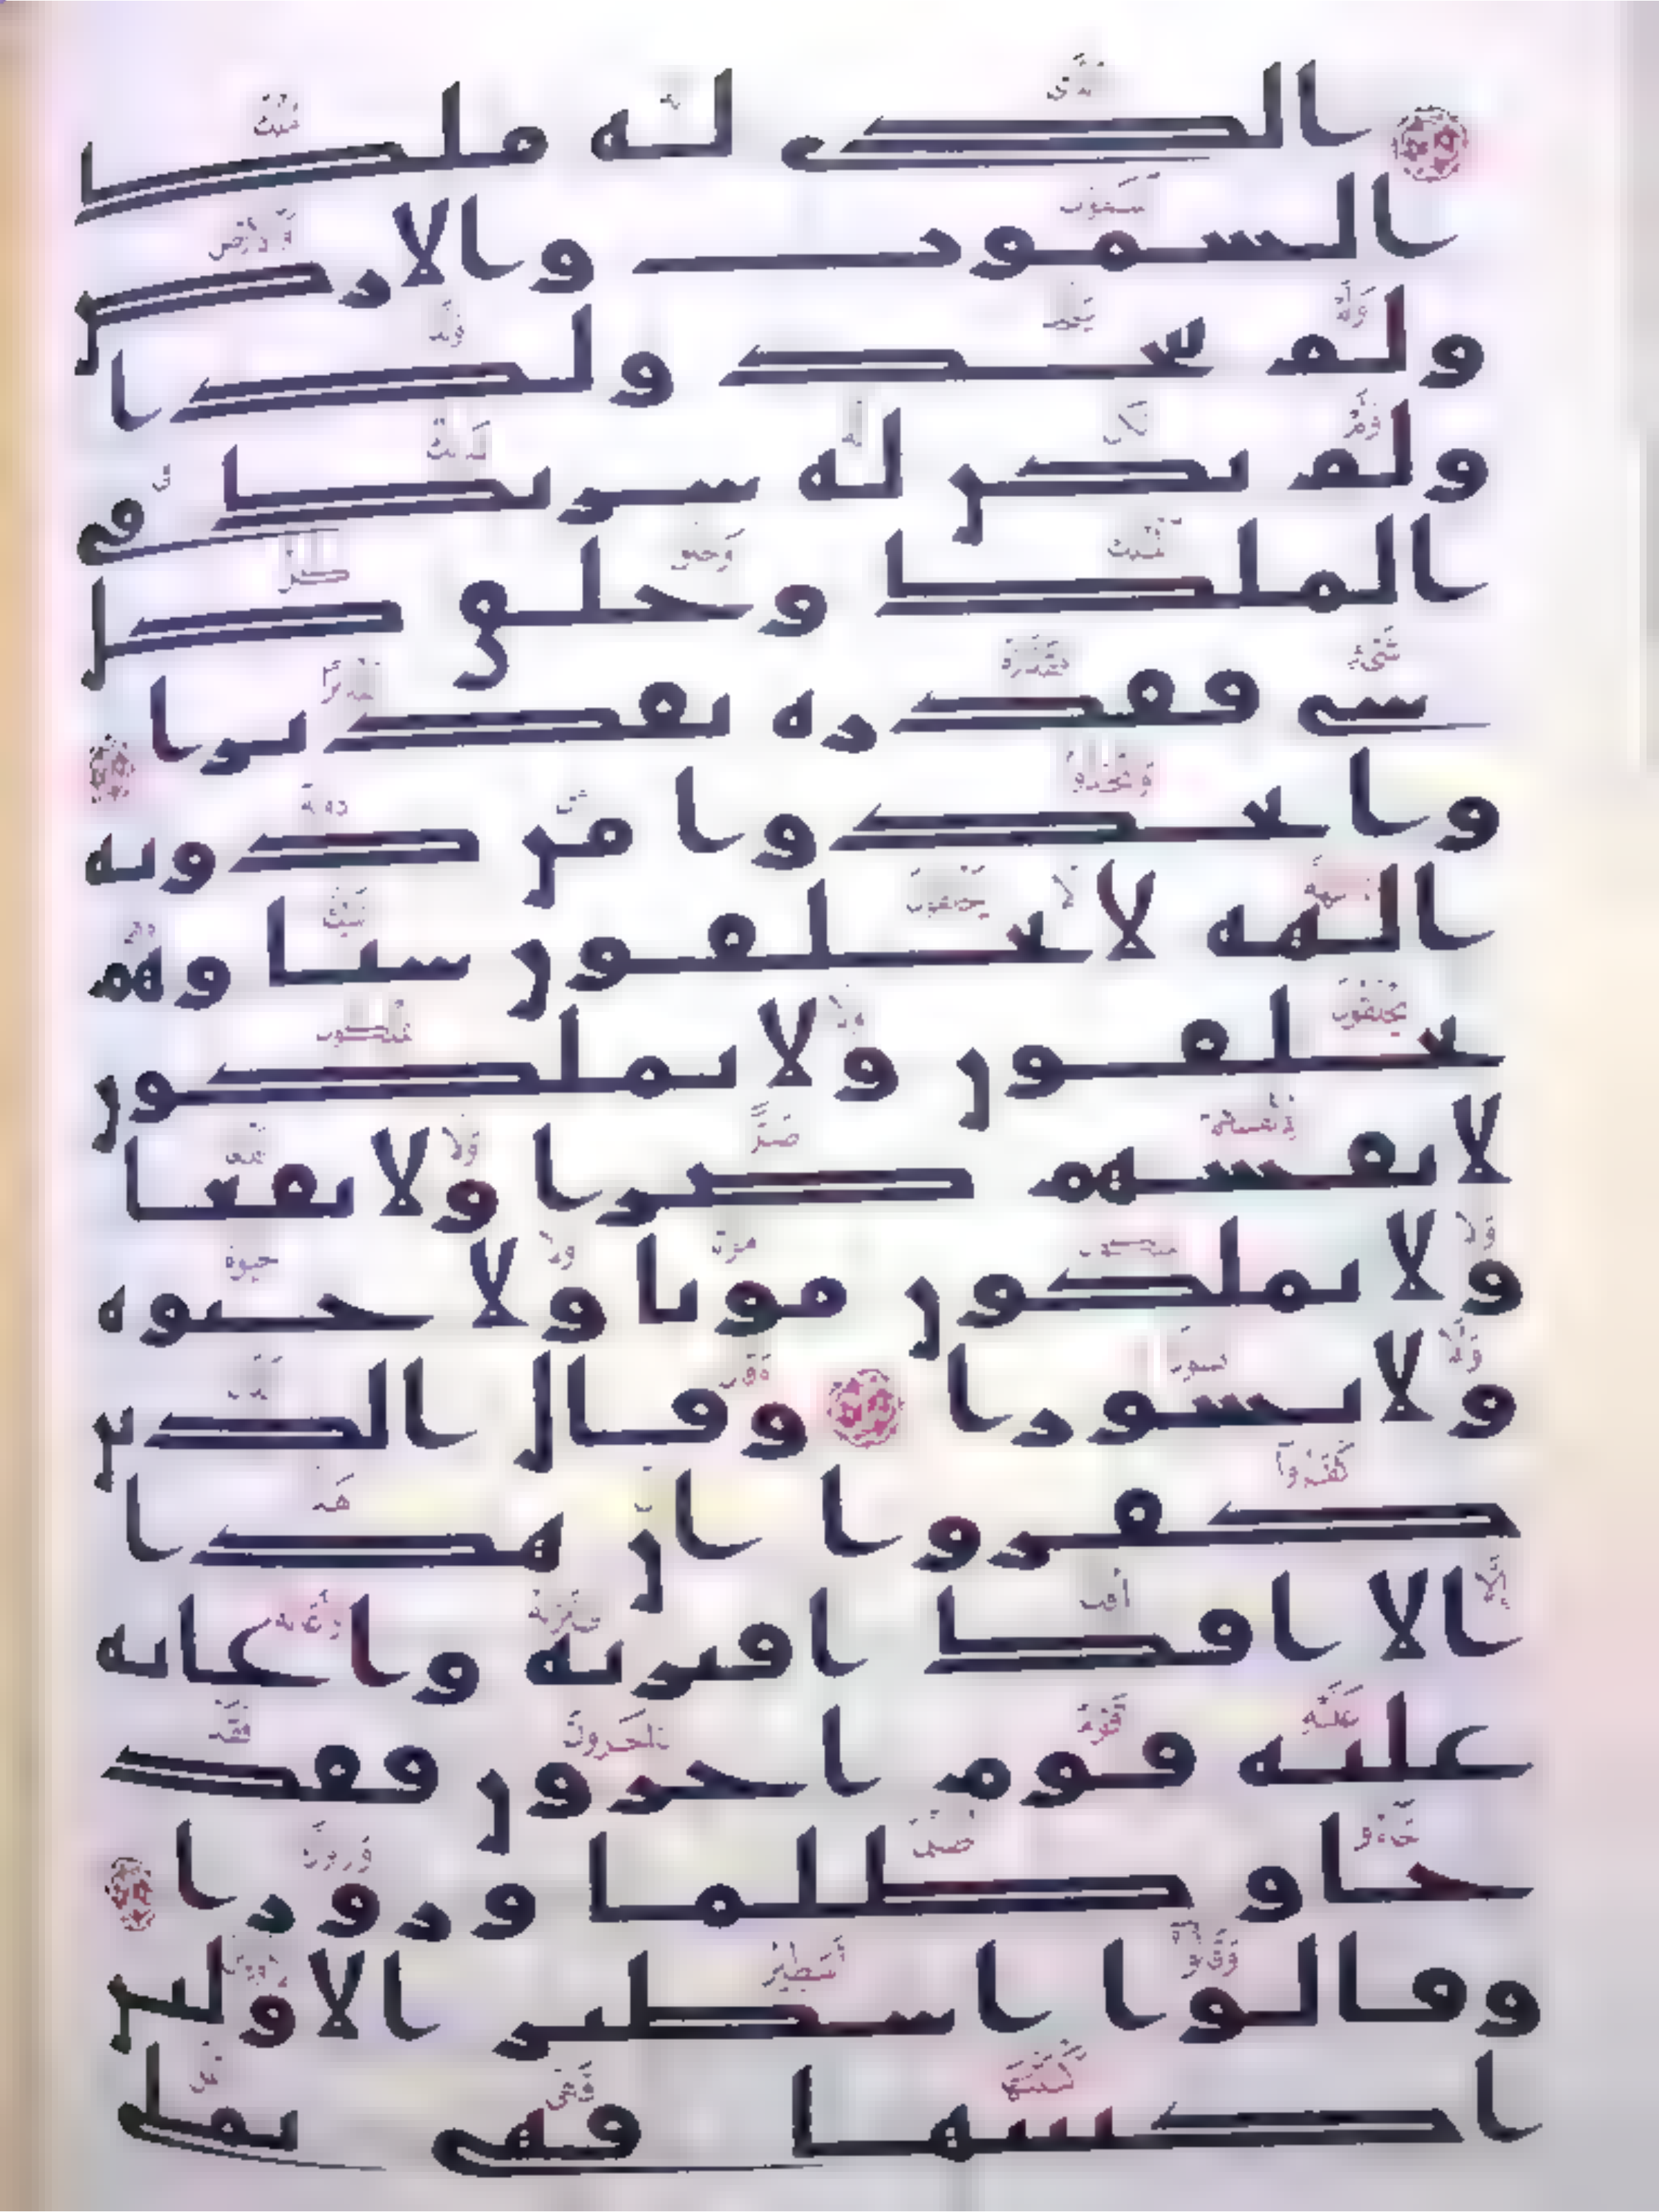 الذى له ملك
السموت والارض
ولم يتخذ ولدا
ولم يكن له شريك فى
الملك وخلق كل
شى فقدره تقديرا
واتخذوا من دونه
الهه لا يخلقون شيا وهم
يخلقون ولا يملكون
لانفسهم ضرا ولا نفعا
ولا يملكون موتا ولا حيوه
ولا نشورا وقال الذين
كفروا ان هذا
الا افك افتريه واعانه
عليه قوم اخرون فقد
جاو ظلما وزورا
وقالوا اسطير الاولين
اكتتبها فهى تملى